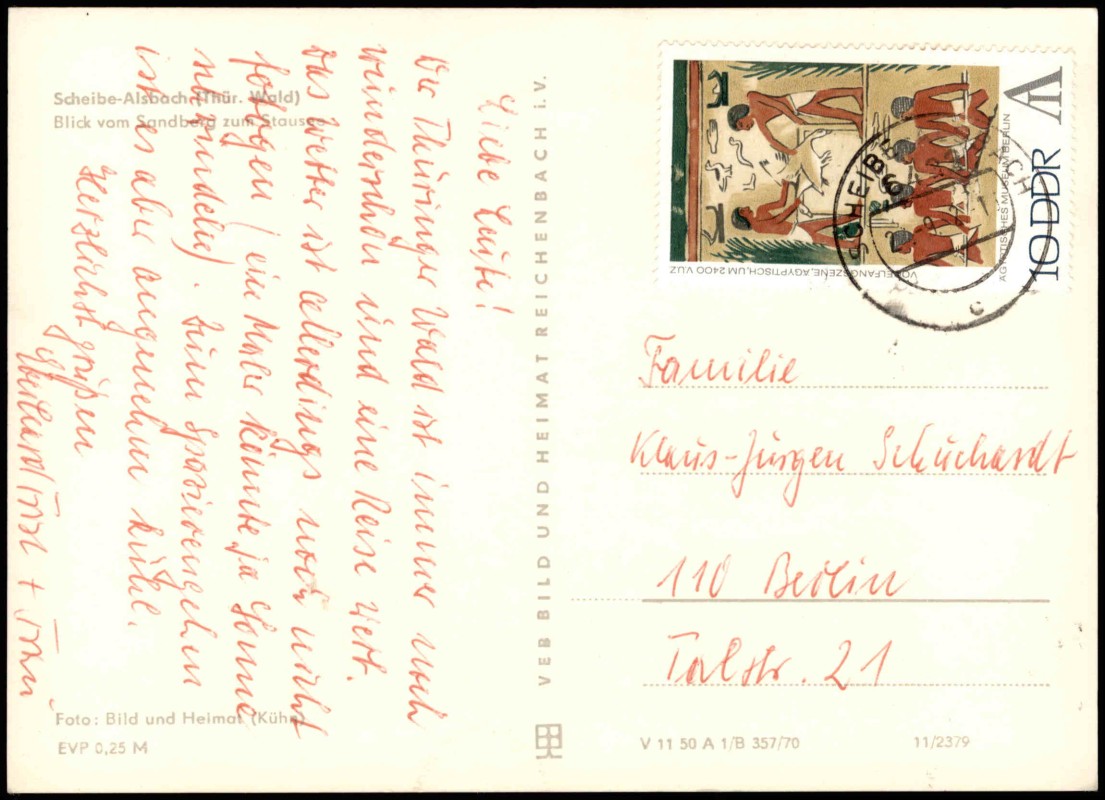 Scheibe-Alsbach (Thür. Wald)
Blick vom Sandberg zum Stausee
Liebe Leute!
Der Thüringer Wald ist immer noch
wunderschön und eine Reise wert.
Das Wetter ist allerdings noch nicht
(ein Maler könnte ja Sonne
nachpudeln). Zum Spazierengehen
ist es aber angenehm kühl.
Herzlichst grüßen
+ Frau
Foto: Bild und Heimat (Kühn)
EVP 0,25 M
VEB BILD UND HEIMAT REICHENBACH i. V.
VOGELFANGSZENE, ÄGYPTISCH, UM 2400 V.U.Z
ÄGYPTISCHES MUSEUM BERLIN
10 DDR
SCHEIBE
Familie
Klaus-Jürgen Schuchardt
110 Berlin
Talstr. 21
V 11 50 A 1/B 357/70
11/2379